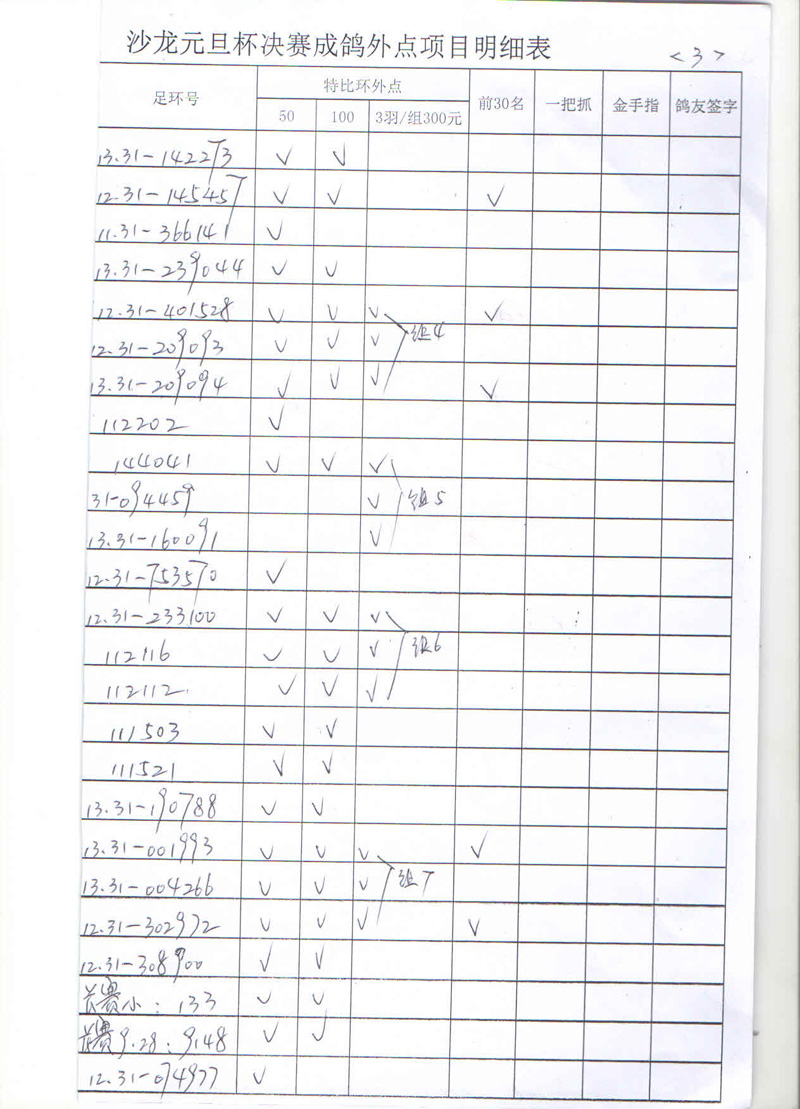 沙龙元旦杯决赛成鸽外点项目明细表
<3>
足环号 特比环外点 前30名 一把抓 金手指 鸽友签字
50 100 3羽/组300元
13.31-142273 √ √
12.31-145457 √ √ √
11.31-366141 √
13.31-239044 √ √
12.31-401528 √ √ √ √
组4
12.31-209093 √ √ √
13.31-209094 √ √ √ √
112202 √
144041 √ √ √
31-094459 √ 组5
13.31-160091 √
12.31-753570 √
12.31-233100 √ √ √
112116 √ √ √ 组6
112112 √ √ √
111503 √ √
111521 √ √
13.31-190788 √ √
13.31-001993 √ √ √ √
13.31-004266 √ √ √ 组7
12.31-302972 √ √ √ √
12.31-308900 √ √
小:133 √ √
9.28:9148 √ √
12.31-074977 √